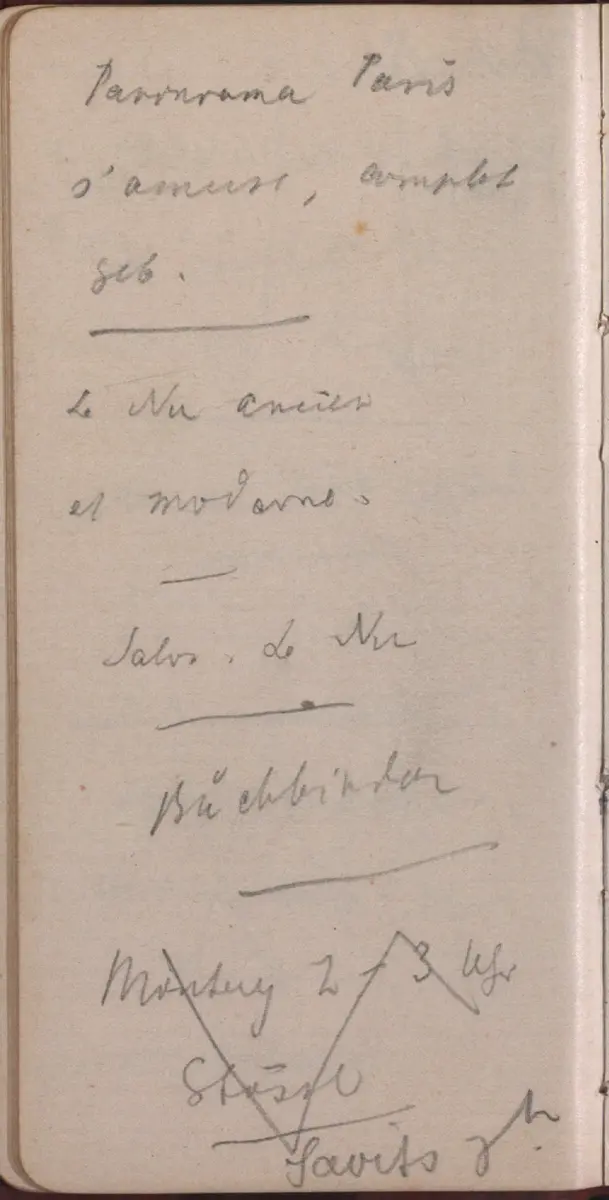 Panorama Paris
s'amuse, complet
geb.
Le Nu ancien
et moderne.
Salon. Le Nu
Buchbinder
Montag 2 - 3 Uhr
Stössl
Savits